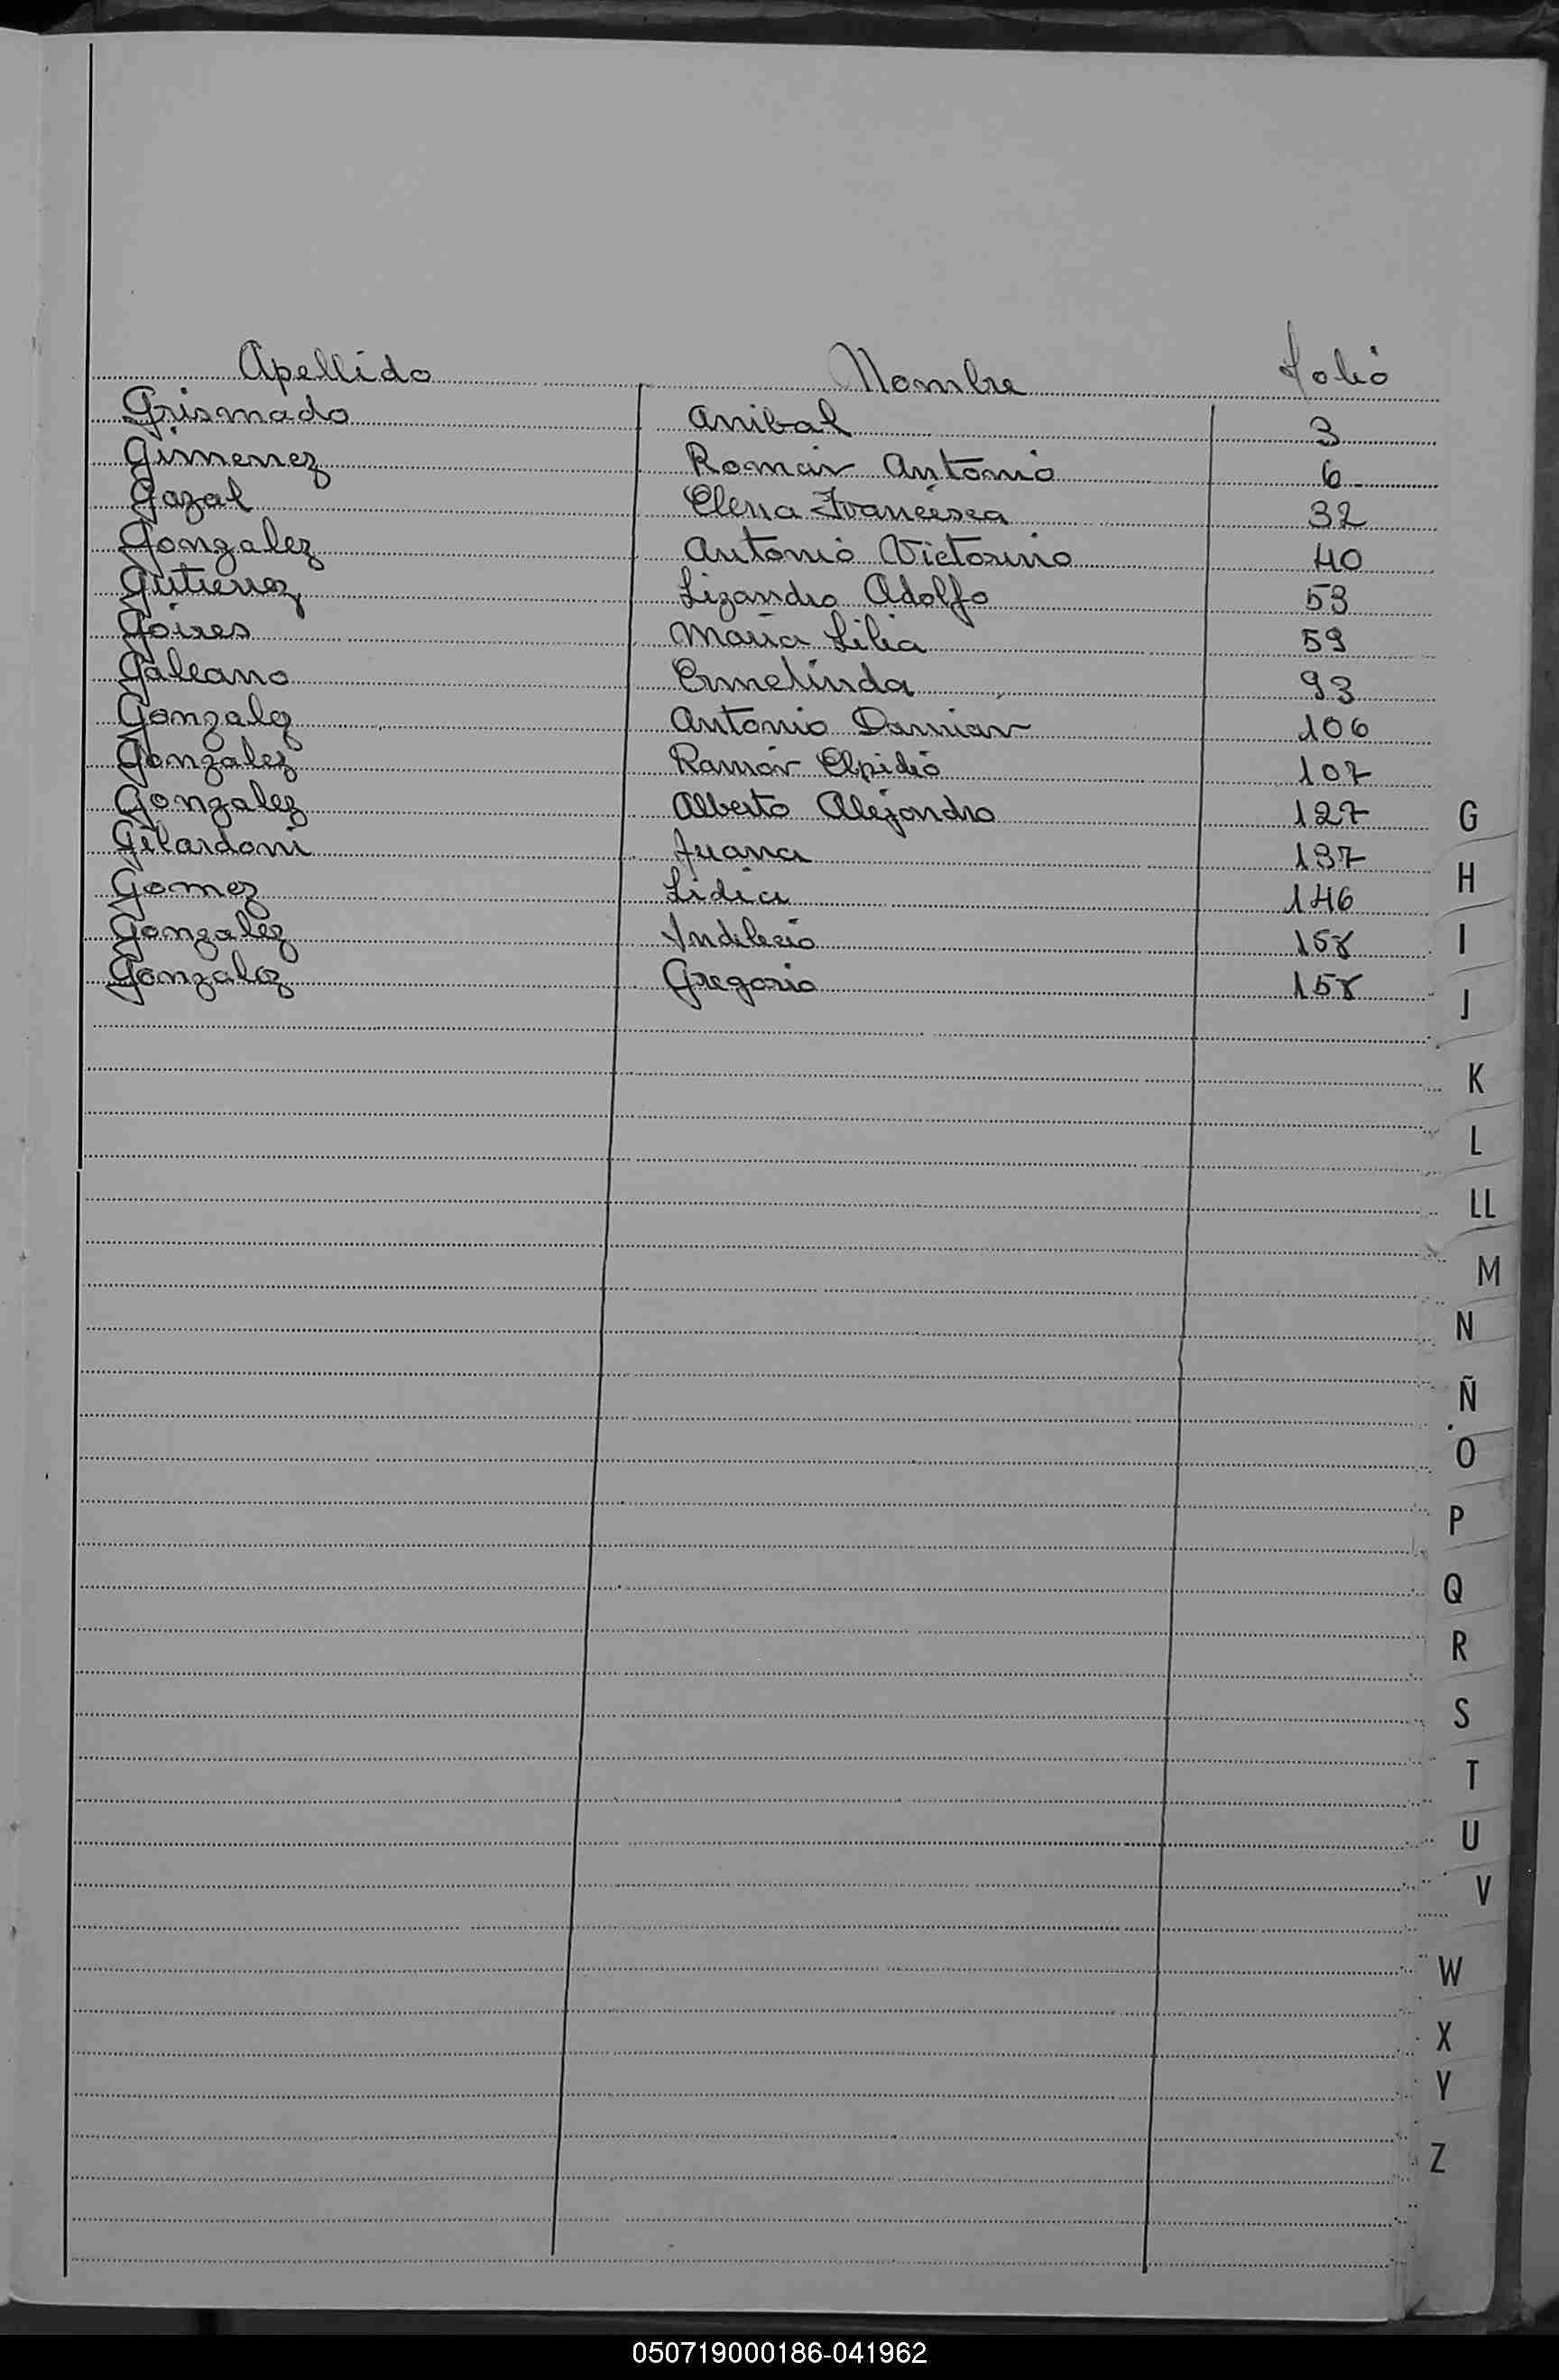 Apellido Nombre Folio
Grismado Anibal 3
Gimenez Román Antonio 6
Gazal Elena Francisca 32
Gonzalez Antonio Victorino 40
Gutierrez Lizandro Adolfo 53
Goires Maria Lilia 59
Galeano Ermelinda 93
Gonzalez Antonio Damian 106
Gonzalez Ramón Elpidio 107
Gonzalez Alberto Alejandro 127
Gilardoni Juana 137
Gomez Lidia 146
Gonzalez Indelecio 158
Gonzalez Gregorio 158
G
H
I
J
K
L
LL
M
N
Ñ
O
P
Q
R
S
T
U
V
W
X
Y
Z
050719000186-041962